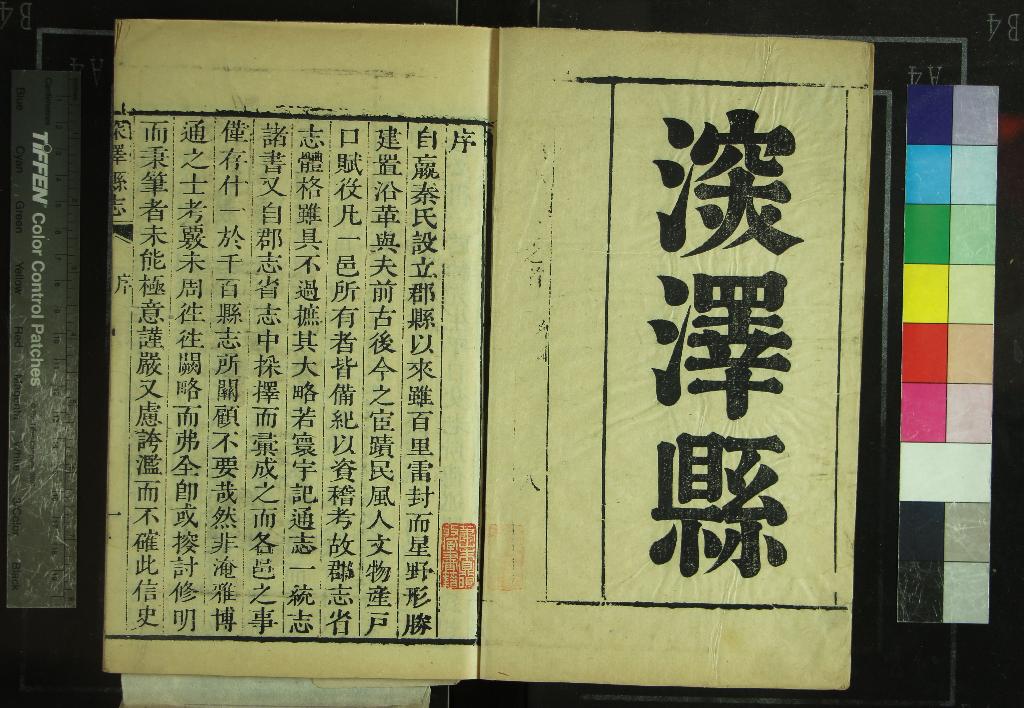 深澤縣
序
自嬴秦氏設立郡縣以來雖百里雷封而星野形勝
建置沿革與夫前古後今之宦蹟民風人文物產戶
口賦役凡一邑所有者皆備紀以資稽考故郡志省
志體格雖具不過摭其大略若寰宇記通志一統志
諸書又自郡志省志中採擇而彚成之而各邑之事
僅存什一於千百縣志所關顧不要哉然非淹雅博
通之士考覈未周徃徃闕略而弗全卽或搜討修明
而秉筆者未能極意謹嚴又慮誇濫而不確此信史
深澤縣志
序
一
TIFFEN Color Control Patches
Blue
Cyan
Green
Yellow
Red
Magenta
White
3/Color
Black
B4
A4
A4
B4